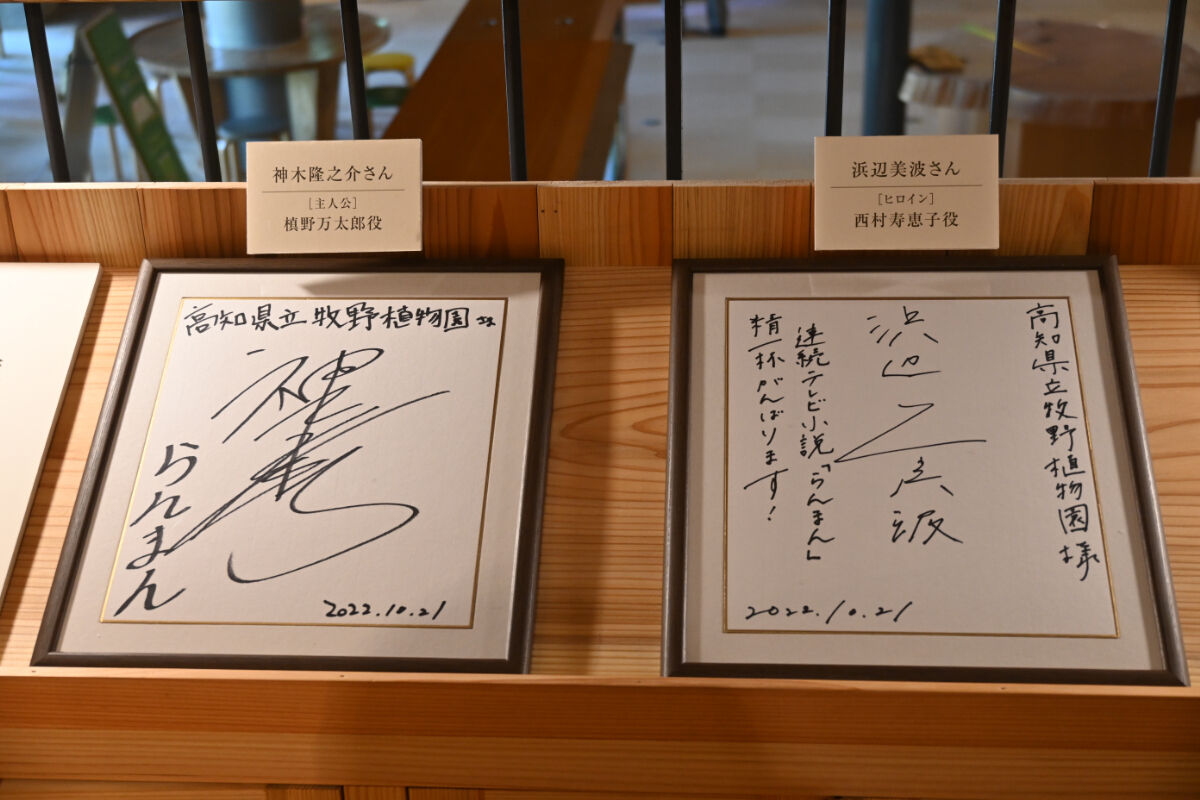 神木隆之介さん
［主人公］
槙野万太郎役
高知県立牧野植物園さま
神木
らんまん
2022.10.21
浜辺美波さん
［ヒロイン］
西村寿恵子役
高知県立牧野植物園様
浜辺美波
連続テレビ小説「らんまん」
精一杯がんばります！
2022.10.21